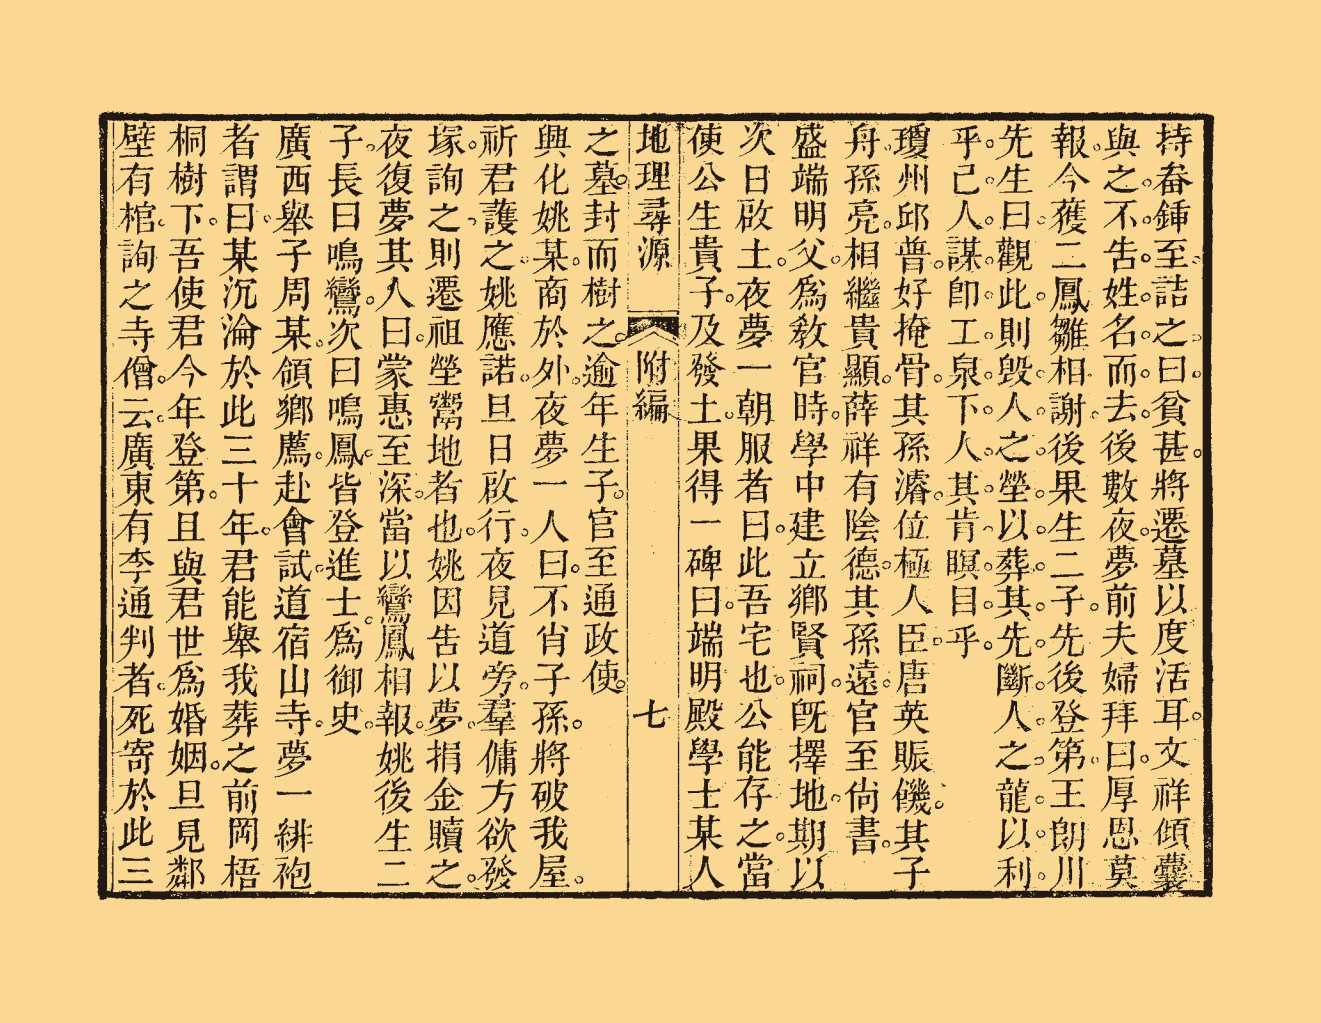 持畚鍾至詰之曰貧甚將遷墓以度活耳文祥傾囊
與之不吿姓名而去後數夜夢前夫婦拜曰厚恩莫
報今獲二鳳雛相謝後果生二子先後登第王朗川
先生曰觀此則毀人之塋以葬其先斷人之龍以利
乎己人謀卽工泉下人其肯瞑目乎
瓊州邱普好掩骨其孫濬位極人臣唐英賑饑其子
舟孫亮相繼貴顯薛祥有陰德其孫遠官至尙書
盛端明父爲敎官時學中建立鄕賢祠旣擇地期以
次日啟土夜夢一朝服者曰此吾宅也公能存之當
使公生貴子及發土果得一碑曰端明殿學士某人
地理尋源 附編 七
之墓封而樹之逾年生子官至通政使
興化姚某商於外夜夢一人曰不肖子孫將破我屋
祈君護之姚應諾旦日啟行夜見道旁羣傭方欲發
塚詢之則遷祖塋鬻地者也姚因吿以夢捐金贖之
夜復夢其人曰蒙惠至深當以鸞鳳相報姚後生二
子長曰鳴鸞次曰鳴鳳皆登進士爲御史
廣西舉子周某領鄕薦赴會試道宿山寺夢一緋袍
者謂曰某沉淪於此三十年君能舉我葬之前岡梧
桐樹下吾使君今年登第且與君世爲婚姻旦見鄰
壁有棺詢之寺僧云廣東有李通判者死寄於此三